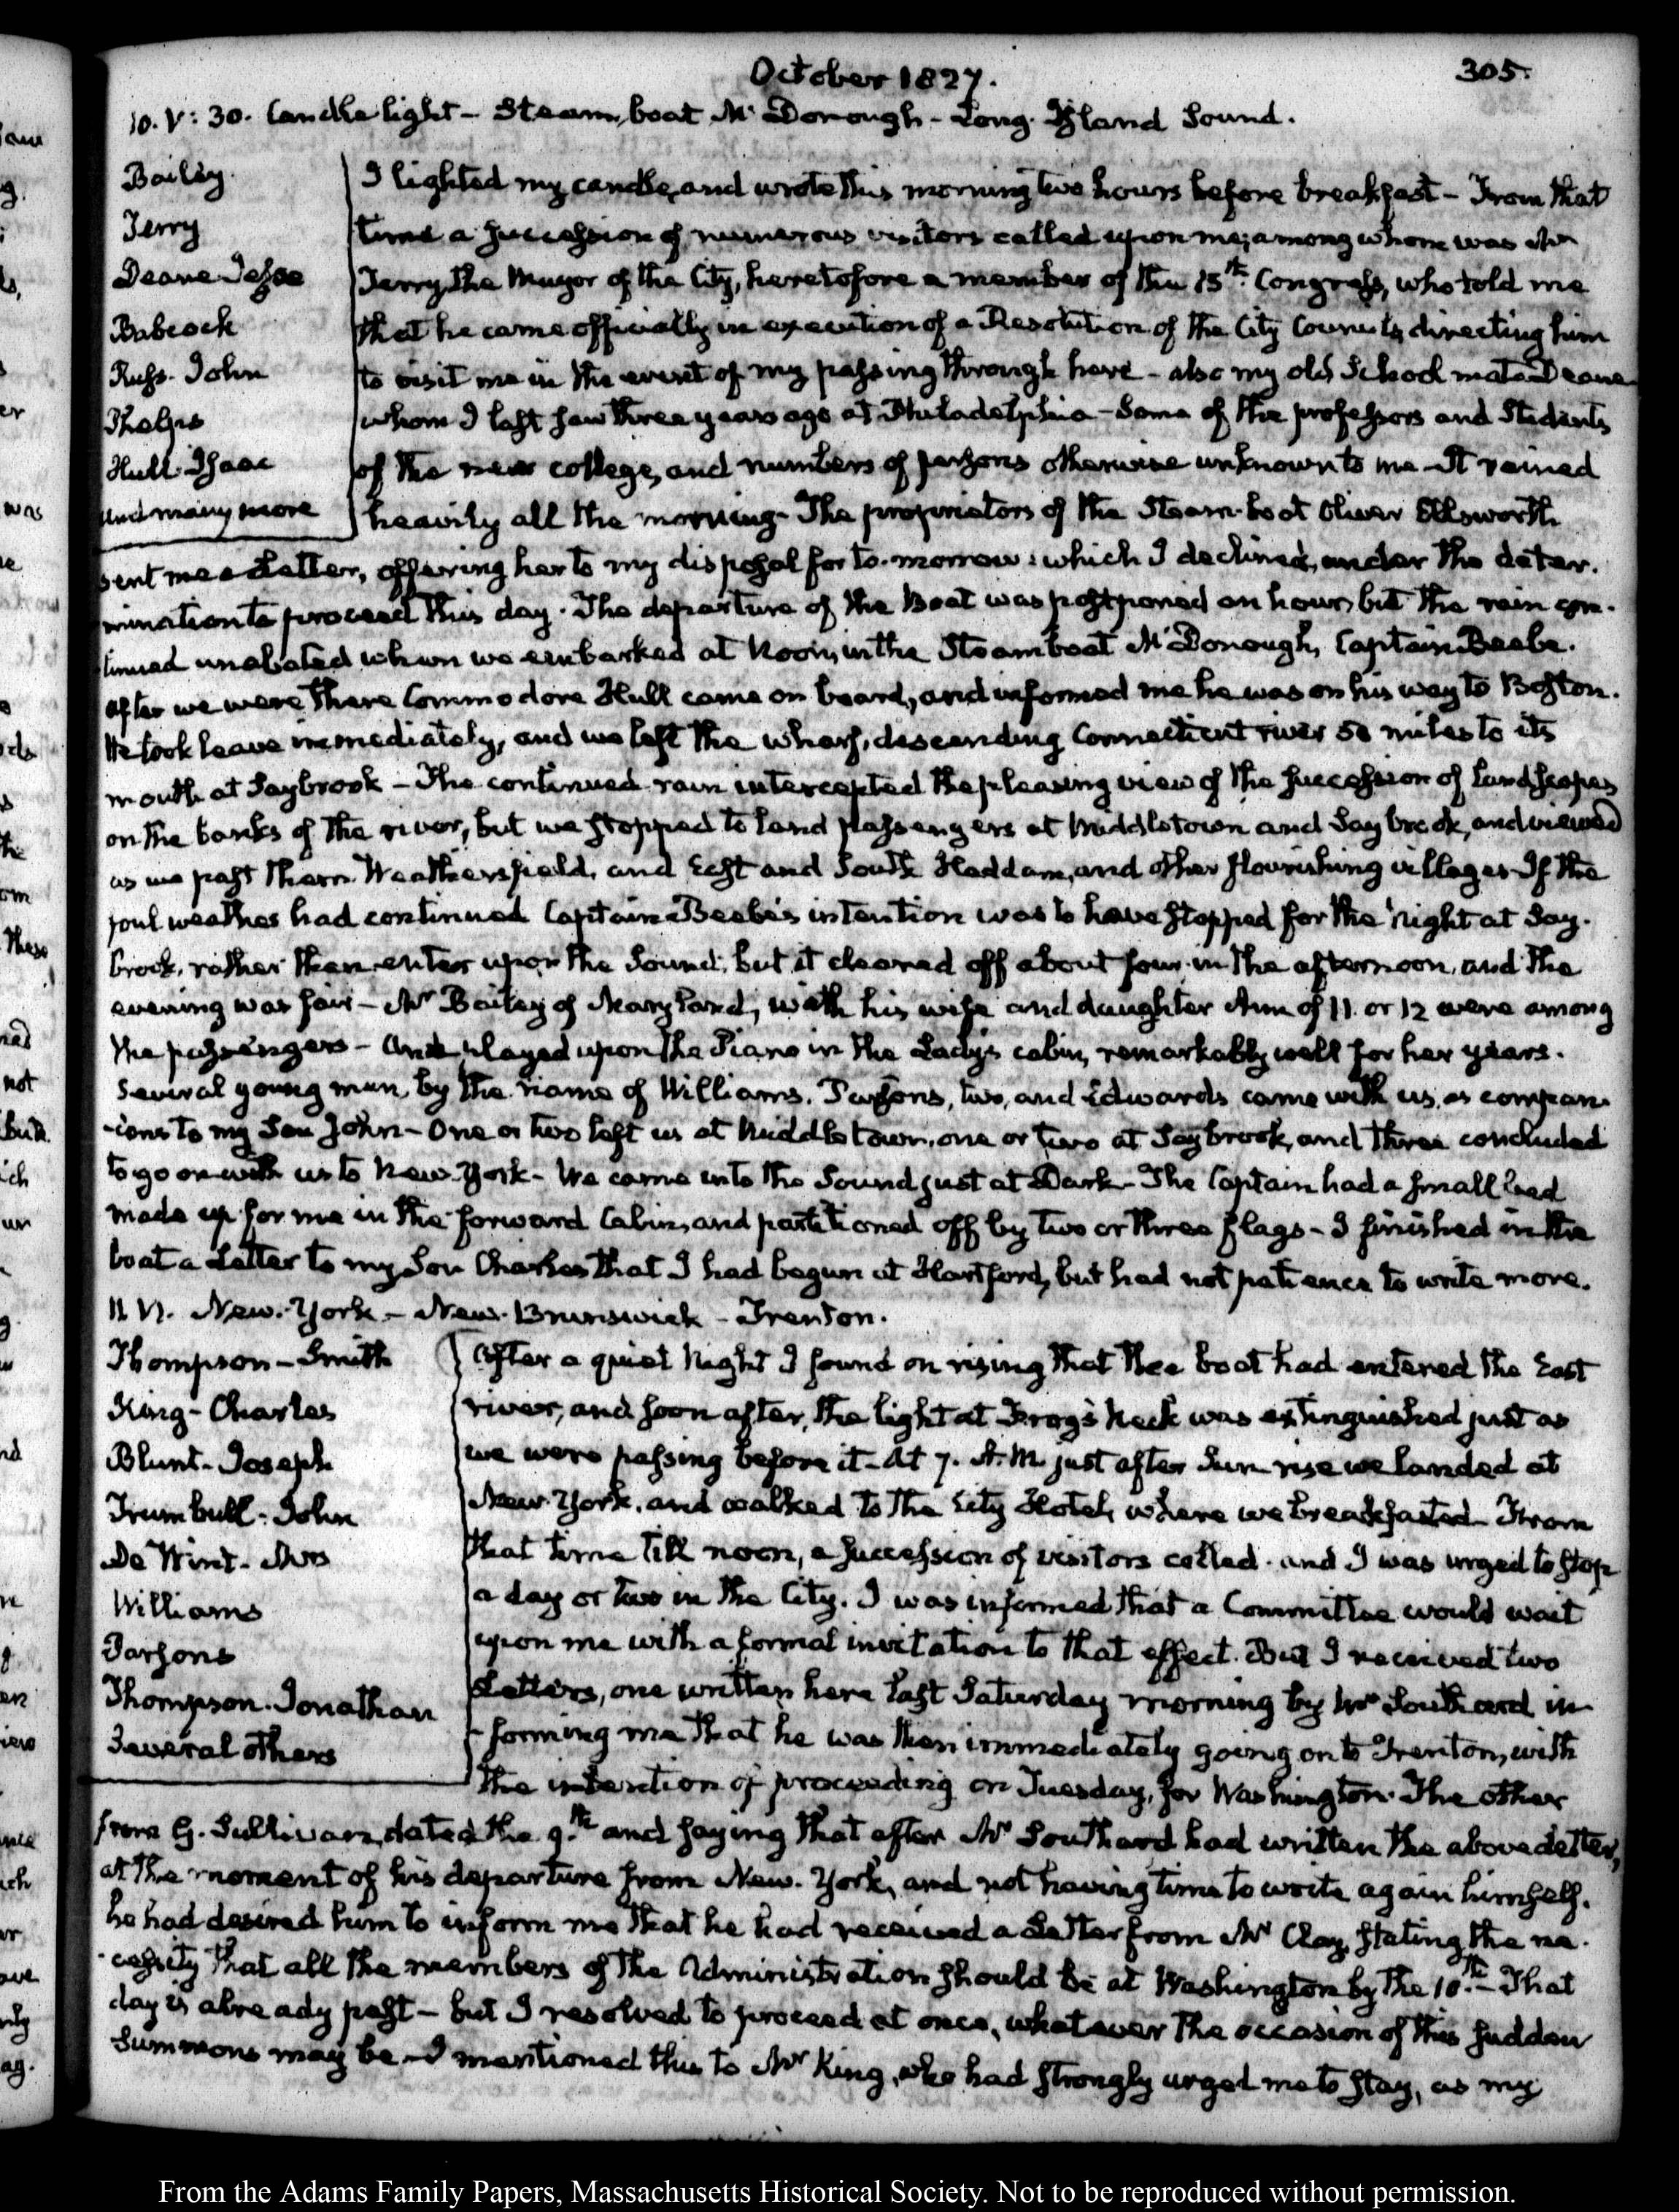 October 1827.
305.
10. V: 30. Candle light – Steam boat Mc Donough – Long Island Sound.
Bailey.
Terry
Deane Jesse
Babcock
Russ. John
Phelps
Hull. Isaac
and many more
I lighted my candle, and wrote this morning two hours before breakfast – From that
time a succession of numerous visitors called upon me; among whom was Mr
Terry the Mayor of the City, heretofore a member of the 15th. Congress, who told me
that he came officially in execution of a Resolution of the City Councils, directing him
to visit me in the event of my passing through here – also my old School mate Deane
whom I last saw three years ago at Philadelphia – Some of the professors and Students
of the new college, and numbers of persons otherwise unknown to me – It rained
heavily all the morning – The proprietors of the Steam-boat Oliver Ellsworth
sent me a Letter, offering her to my disposal for to-morrow: which I declined, under the deter-
mination to proceed this day. The departure of the Boat was postponed an hour, but the rain con-
tinued unabated when we embarked at Noon, in the Steamboat Mc Donough, Captain Beebe.
After we were there Commodore Hull came on board, and informed me he was on his way to Boston.
He took leave immediately, and we left the wharf, descending Connecticut river 50 miles to its
mouth at Saybrook – The continued rain intercepted the pleasing view of the succession of Landscapes
on the banks of the river, but we stopped to land passengers at Middletown and Saybrook, and viewed
as we past them Weathersfield, and East and South Haddam, and other flourishing villages – If the
foul weather had continued Captain Beebe's intention was to have stopped for the night at Say-
brook, rather than enter upon the Sound; but it cleared off about four in the afternoon, and the
evening was fair – Mr Bailey of Maryland, with his wife and daughter Ann of 11. or 12 were among
the passengers – Ann played upon the Piano in the Lady's cabin, remarkably well for her years.
Several young men, by the name of Williams, Parsons, two, and Edwards came with us, as compan-
-ions to my Son John – One or two left us at Middletown, one or two at Saybrook, and three concluded
to go on with us to New-York – We came into the Sound just at Dark – The Captain had a small bed
made up for me in the forward Cabin, and partitioned off by two or three flags – I finished in the
boat a Letter to my Son Charles that I had begun at Hartford, but had not patience to write more.
11 VI. New-York – New-Brunswick – Trenton.
Thompson – Smith
King – Charles
Blunt – Joseph
Trumbull – John
De Wint – Mrs
Williams
Parsons
Thompson. Jonathan
Several others
After a quiet Night I found on rising that the boat had entered the East
river, and soon after, the light at Frog's Neck was extinguished just as
we were passing before it – At 7. A.M. just after Sun rise we landed at
New York, and walked to the City Hotel, where we breakfasted – From
that time till noon, a succession of visitors called – and I was urged to stop
a day or two in the City. I was informed that a Committee would wait
upon me with a formal invitation to that effect. But I received two
Letters, one written here last Saturday morning by Mr Southard in-
-forming me that he was then immediately going on to Trenton, with
the intention of proceeding on Tuesday, for Washington. The other
from G. Sullivan, dated the 9.th and saying that after Mr Southard had written the above Letter,
at the moment of his departure from New-York, and not having time to write again himself,
he had desired him to inform me that he had received a Letter from Mr Clay, stating the ne-
-cessity that all the members of the Administration should be at Washington by the 10.th – That
day is already past – but I resolved to proceed at once, whatever the occasion of this sudden
Summons may be – I mentioned this to Mr King, who had strongly urged me to stay, as my
From the Adams Family Papers, Massachusetts Historical Society. Not to be reproduced without permission.